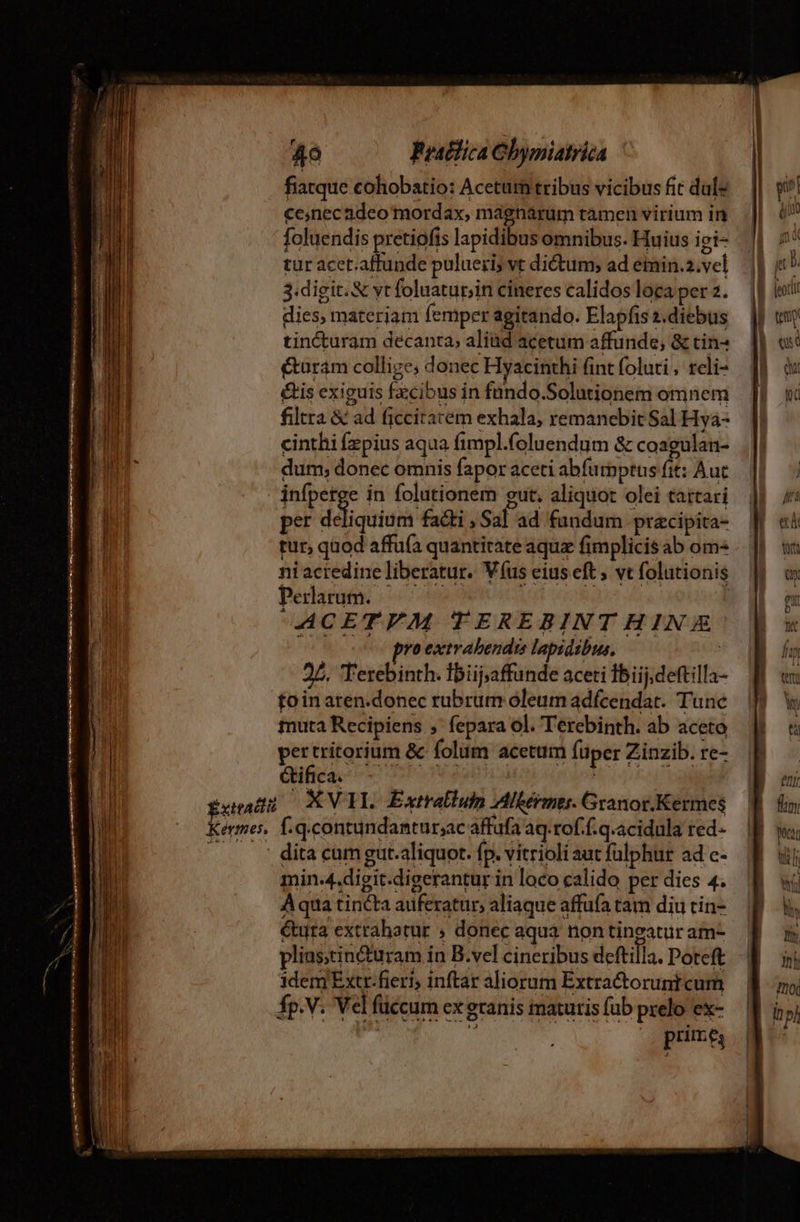 40 Practica Chymiatrica
fiatque cohobatio: Acetum tribus vicibus fit dul-
ce, nec adeo mordax, magnarum tamen virium in
ſoluendis pretioſis lapidibus omnibus. Huius igi-
tur acet. affunde pulueri, vt dictum, ad emin. 2. vel
3. digit. & vt ſoluatur, in cineres calidos loca per 2.
dies, materiam ſemper agitando. Elapſis 2. diebus
tincturam decanta, aliud acetum affunde, & tin-
cturam collige, donec Hyacinthi ſint ſoluti, reli-
ctis exiguis fæcibus in fundo. Solutionem omnem
filtra & ad ſiccitatem exhala, remanebit Sal Hya-
cinthi ſæpius aqua ſimpl. ſoluendum & coagulan-
dum, donec omnis ſapor aceti abſumptus ſit: Aut
inſperge in ſolutionem gut. aliquot olei tartari
per deliquium facti, Sal ad fundum præcipita-
tur, quod affuſa quantitate aquæ ſimplicis ab om-
ni acredine liberatur. Vſus eius eſt, vt ſolutionis
Perlarum.
ACETVM TEREBINTHINÆ
pro extrahendis lapidibus.
♃. Terebinth. ℔iij, affunde aceti ℔iij, deſtilla-
to in aren. donec rubrum oleum adſcendat. Tunc
muta Recipiens, ſepara ol. Terebinth. ab aceto
per tritorium & ſolum acetum ſuper Zinzib. re-
ctifica.
Extractū XVII. Extractum Alkermes. Granor. Kermes
Kermes. ſ. q. contundantur, ac affuſa aq. roſ. ſ. q. acidula red-
dita cum gut. aliquot. ſp. vitrioli aut ſulphur ad e-
min. 4. digit. digerantur in loco calido per dies 4.
Aqua tincta auferatur, aliaque affuſa tam diu tin-
ctura extrahatur, donec aqua non tingatur am-
plius, tincturam in B. vel cineribus deſtilla. Poteſt
idem Extr. fieri, inſtar aliorum Extractorum cum
ſp. V. Vel ſuccum ex granis maturis ſub prelo ex-
prime,